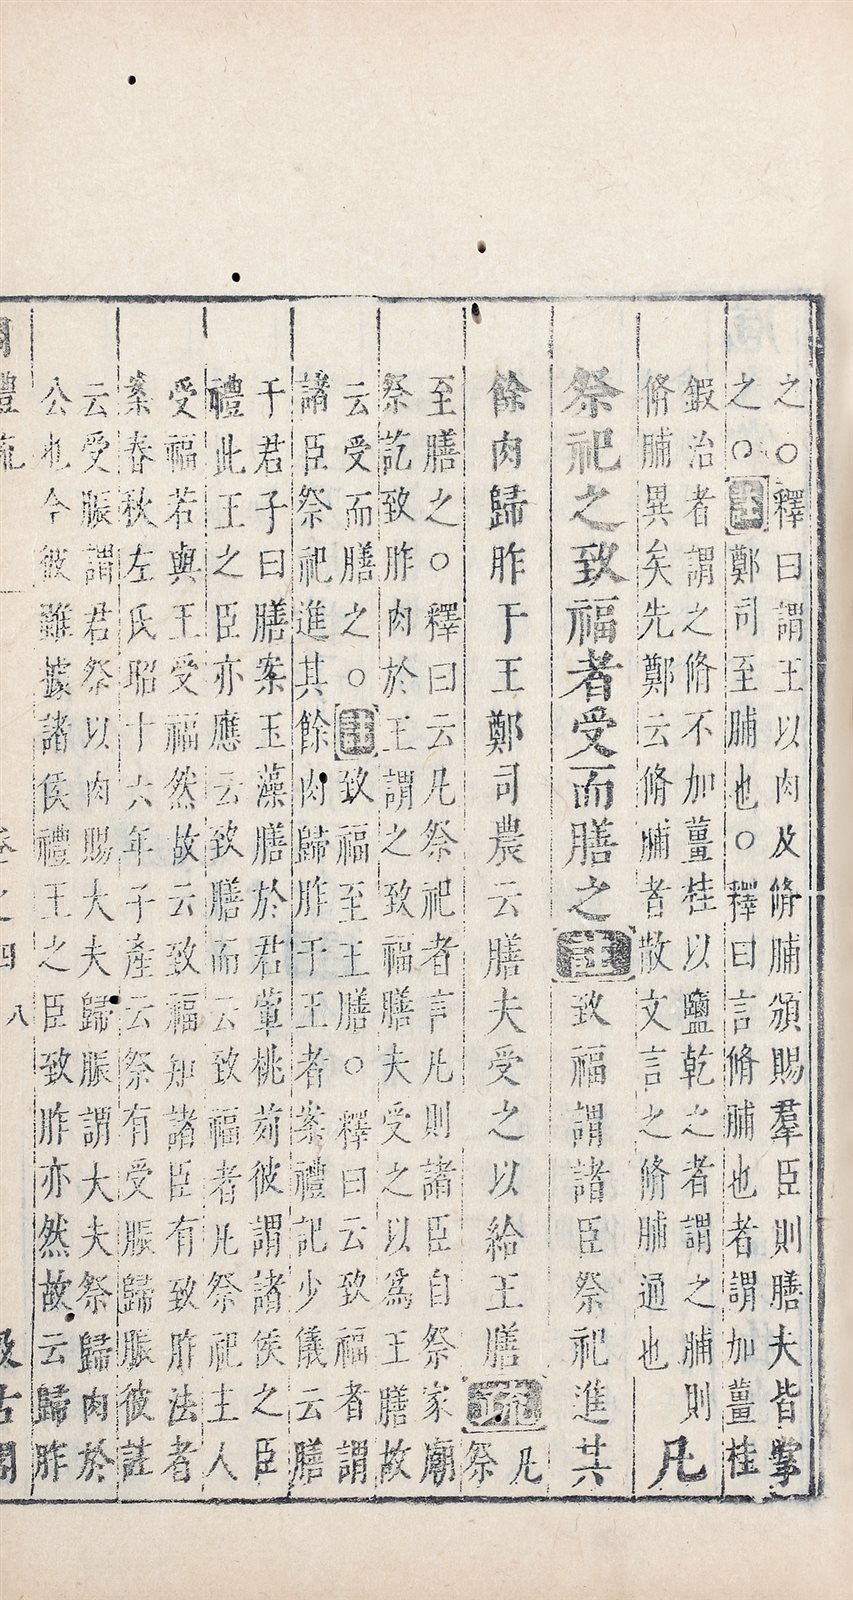 之○釋曰謂王以肉及脩脯頒賜羣臣則膳夫皆掌
之○註鄭司至脯也○釋曰言脩脯也者謂加薑桂
鍜治者謂之脩不加薑桂以鹽乾之者謂之脯則
脩脯異矣先鄭云脩脯者散文言之脩脯通也
凡
祭祀之致福者受而膳之註致福謂諸臣祭祀進其
餘肉歸胙于王鄭司農云膳夫受之以給王膳疏
凡
祭
至膳之○釋曰云凡祭祀者言凡則諸臣自祭家廟
祭訖致胙肉於王謂之致福膳夫受之以爲王膳故
云受而膳之○註致福至王膳○釋曰云致福者謂
諸臣祭祀進其餘肉歸胙于王者案禮記少儀云膳
于君子曰膳案玉藻膳於君葷桃茢彼謂諸侯之臣
禮此王之臣亦應云致膳而云致福者凡祭祀主人
受福若與王受福然故云致福知諸臣有致胙法者
案春秋左氏昭十六年子產云祭有受脤歸脤彼註
云受脤謂君祭以肉賜大夫歸脤謂大夫祭歸肉於
公也今彼雖據諸侯禮王之臣致胙亦然故云歸胙
八